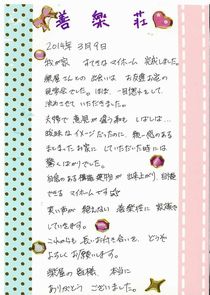 善樂荘
2014年 3月9日
我が家 すてきなマイホーム 完成しました。
さんとの 出会いは お友達お宅の
見学会でした。ほぼ 一目惚れとして
決めさせて いただきました。
大博で 意見が 盛り あがり しばしば…
曖昧なイメージだったのに 無一感のある
まとまったお家に していただいた時には
驚くばかりでした。
自慢のある 建物が 出来上がり、自慢
できる マイホームです
笑い声が 絶えない 善樂荘に
していきます。
これからも 長いお付き合いを、どうぞ
よろしく お願いします。
の皆様 本当に
ありがとう ございました。